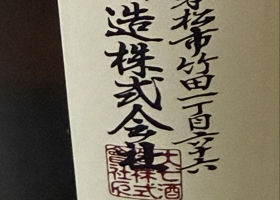 松市竹田一丁目六十六
造株式会社
大七酒
株式
會社印